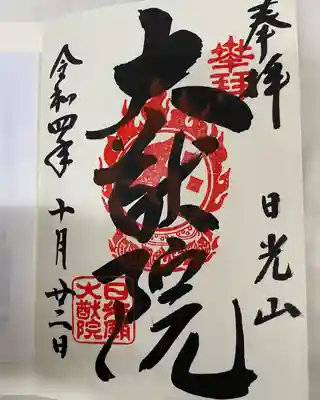 奉拝
日光山
大猷院
令和四年十月廿二日
日光廟
大猷院